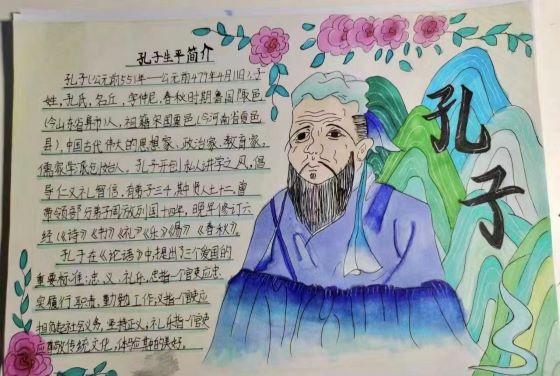 孔子生平简介
孔子(公元前551年——公元前479年4月11),子
姓,孔氏,名丘,字仲尼,春秋时期鲁国陬邑
(今山东省曲阜市)人,祖籍宋国栗邑(今河南省夏邑
县),中国古代伟大的思想家、政治家、教育家,
儒家学派创始人。孔子开创私人讲学之风,倡
导仁义礼智信,有弟子三千,其中贤人七十二,曾
带领部分弟子周游列国十四年,晚年修订六
经《诗》《书》《礼》《乐》《易》《春秋》。
孔子在《论语》中提出了三个爱国的
重要标准:忠、义、礼乐,忠指个官吏应忠
实履行职责,勤勉工作,义指个官吏应
担负起社会义务,坚持正义,礼乐指个官吏
应尊敬传统文化,体验其的美好。
孔子